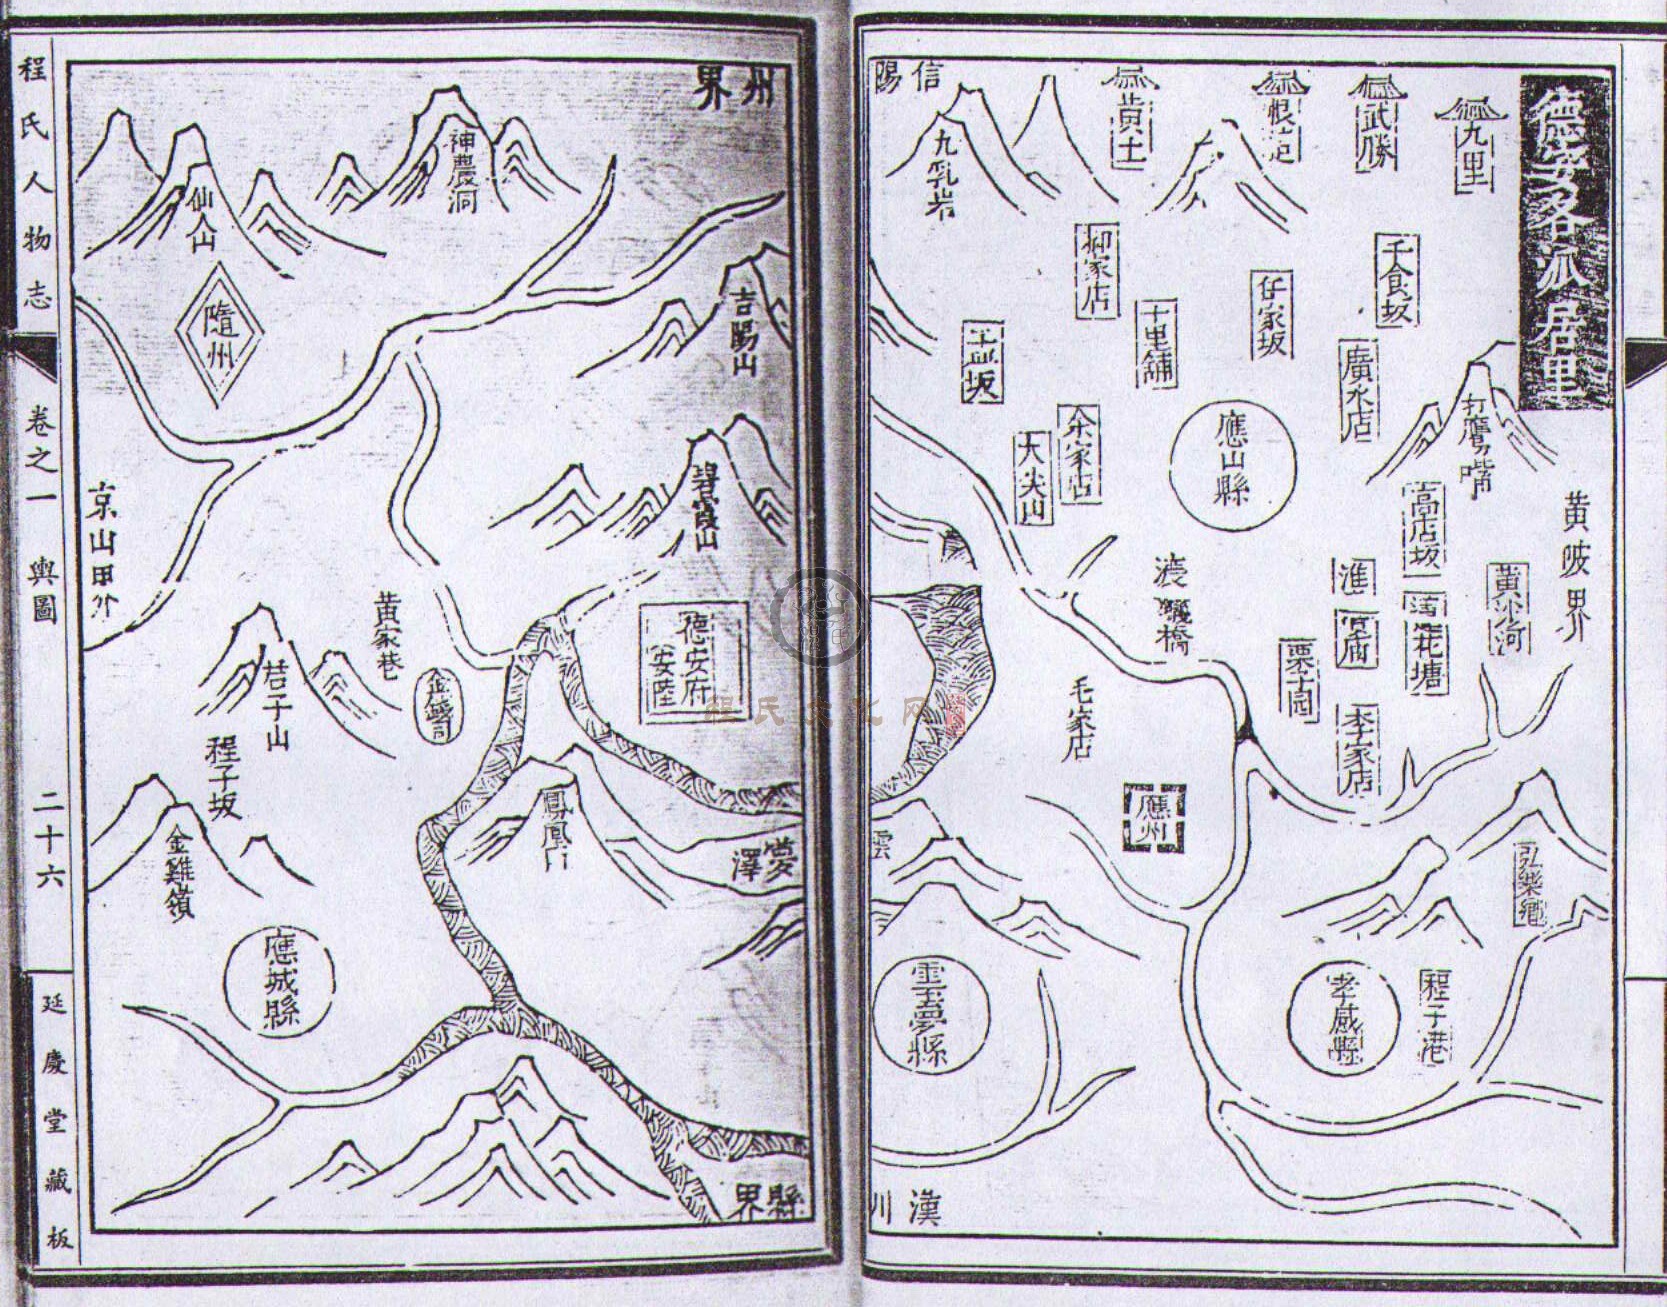 德安各派居里
九里
武勝
黃土
信陽
州界
九乳岩
柳家店
仔家坂
千食坂
十里舖
廣水店
余家店
大尖山
應山縣
打鷹嘴
高店坂
黃陂界
黃沙河
蓮花塘
淮
官廟
栗士園
李家店
橋
毛家店
應州
弘樂鄉
程子港
孝感縣
雲夢縣
雲
夢澤
漢川
縣界
神農洞
仙人山
隨州
吉陽山
碧霞山
京山界
德安府
安陸
黃家巷
程子坂
鳳凰
金雞嶺
應城縣
程氏人物志
卷之一 輿圖
二十六
延慶堂藏板
程氏文化网